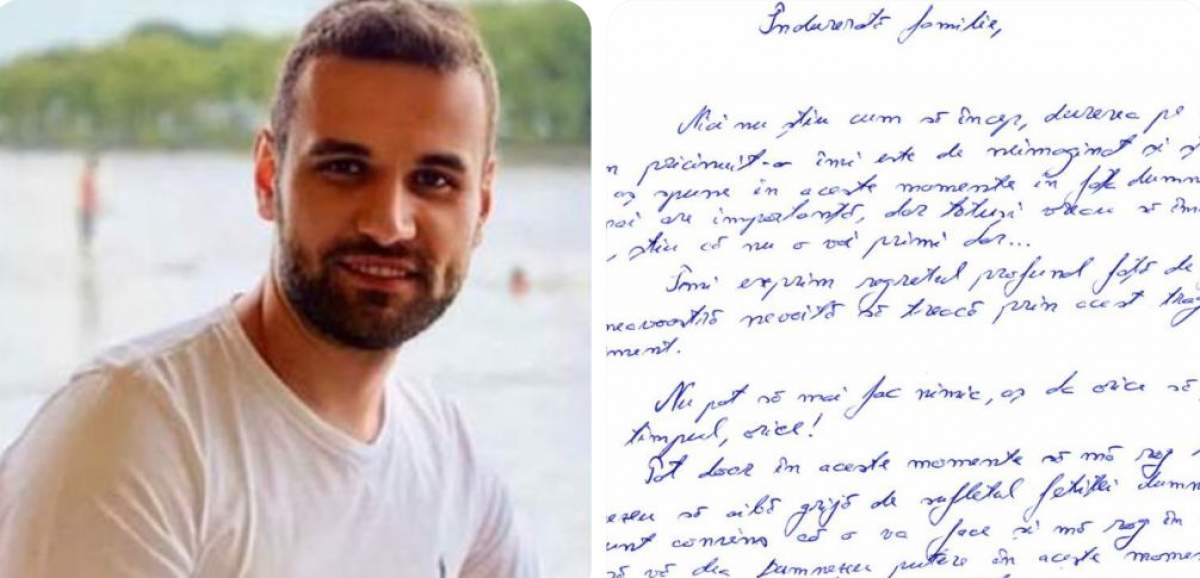 Îndurerată familie,
Nici nu știu cum să încep, durerea pe
pricinuit-o îmi este de neimaginat și
aș spune în aceste momente în fața dumn
are importanță, dar totuși vreau să îm
știu că nu o voi primi dar...
Îmi exprim regretul profund față de
neavoastră nevoită să treacă prin acest trag
ment.
Nu pot să mai fac nimic, aș da orice să
timpul, orice!
Pot doar în aceste momente să mă rog
ezeu să aibă grijă de sufletul fetiței dumn
unt convins că o va face și mă rog în
să vă dea Dumnezeu putere în aceste momen